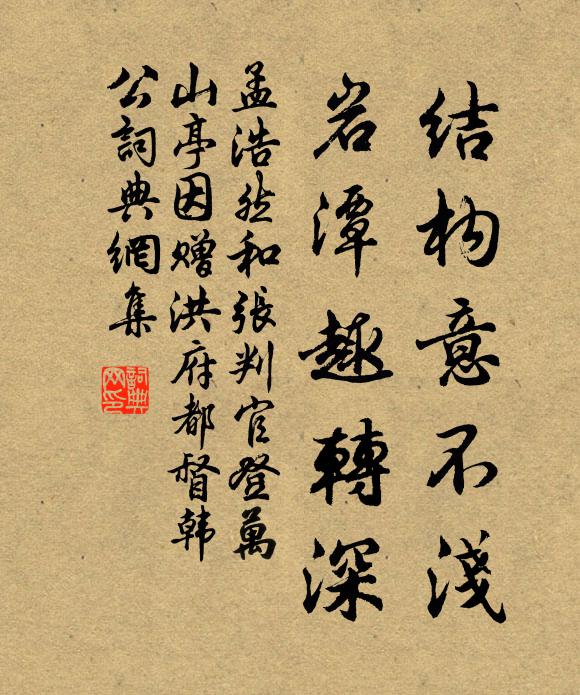 结构意不淺
岩潭趣轉深
孟浩然和張判官登萬
山亭因贈洪府都督韩
公詞典網集
詞典网印